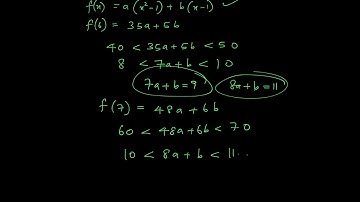 f(x) = a(x²-1) + b(x-1) ✓
f(6) = 35a+5b
40 < 35a+5b < 50
8 < 7a+b < 10
7a+b=9 8a+b=11
f(7) = 48a+6b
60 < 48a+6b < 70
10 < 8a+b < 11..